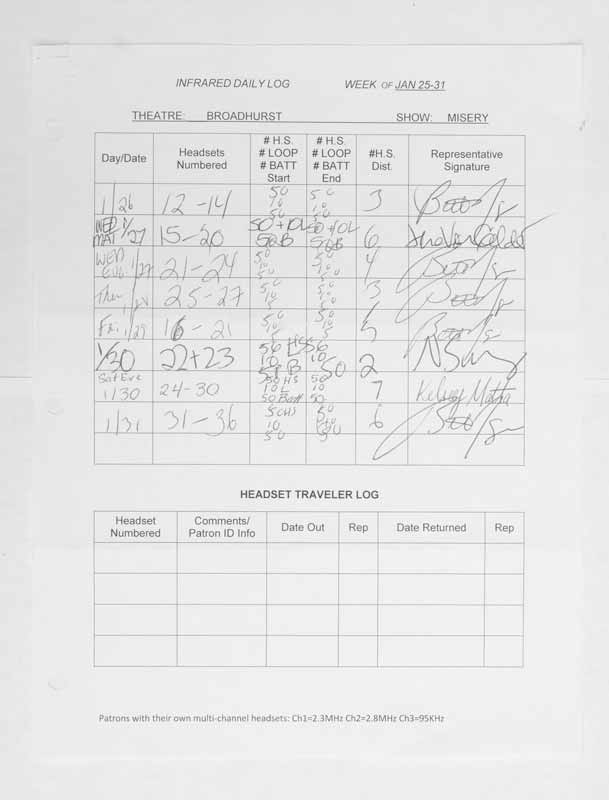 INFRARED DAILY LOG WEEK OF JAN 25-31
THEATRE: BROADHURST SHOW: MISERY
Day/Date Headsets Numbered # H.S. # LOOP # BATT Start # H.S. # LOOP # BATT End #H.S. Dist. Representative Signature
1/26 12-14 50 10 50 50 10 50 3
WED MAT 1/27 15-20 50+10L 50B 50+10L 50B 6
WED EVE 1/27 21-24 50 10 50 50 10 50 4
Thu 1/28 25-27 50 10 50 50 10 50 3
Fri. 1/29 16-21 50 10 50 50 10 50
1/30 22+23 50 HS 10 L 50 B 50 10 50 2
Sat Eve 1/30 24-30 50 HS 10 L 50 Batt 50 10 50 7 Kelsey
1/31 31-36 50(HS) 10 50 50 10 50 6
HEADSET TRAVELER LOG
Headset Numbered Comments/ Patron ID Info Date Out Rep Date Returned Rep
Patrons with their own multi-channel headsets: Ch1=2.3MHz Ch2=2.8MHz Ch3=95KHz